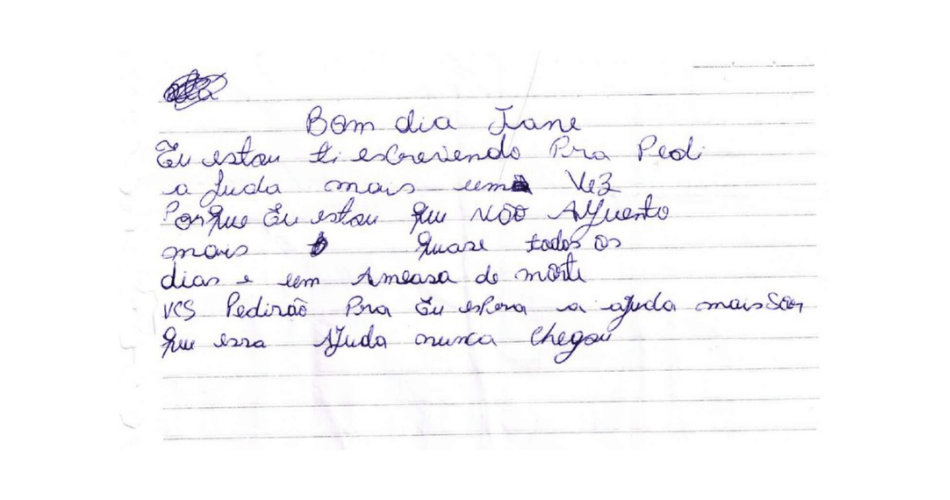 Bom dia Jane
Eu estou ti escrevendo Pra Pedi
a Juda mais uma Vez
Porque Eu estou que não Aguento
mais quase todos os
dias e um Ameasa de morte
vcs Pedirão Pra Eu espera a ajuda mais Son
que essa Ajuda nunca Chegou